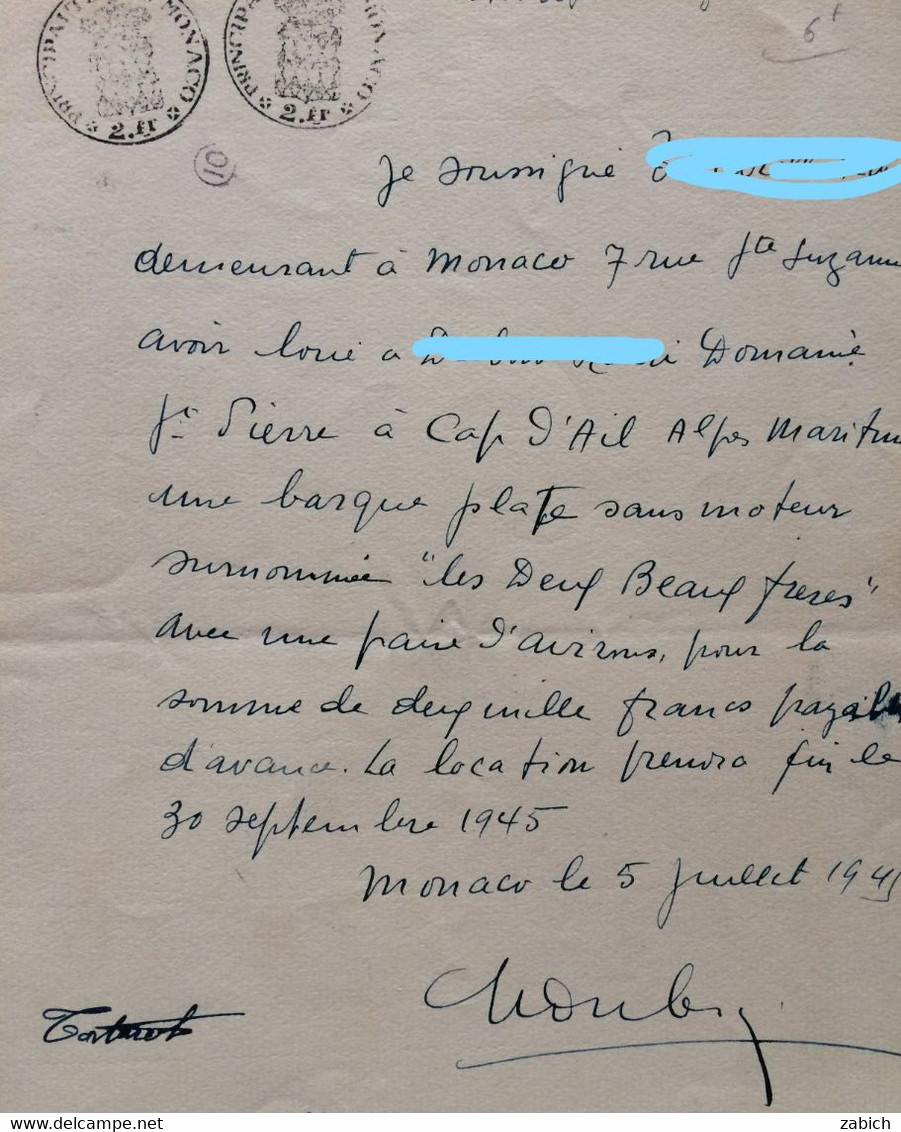 PRINCIPAUTÉ DE MONACO 2.fr
PRINCIPAUTÉ DE MONACO 2.fr
6f
10
Je soussigné
demeurant à Monaco 7 rue Ste Suzanne
avoir loué a Domaine
St Pierre à Cap d'Ail Alpes Maritim
une barque plate sans moteur
surnommée "les Deux Beaux freres"
avec une paire d'avirons, pour la
somme de deux mille francs payable
d'avance. La location prendra fin le
30 septembre 1945
Monaco le 5 Juillet 1945
delcampe.net
zabich